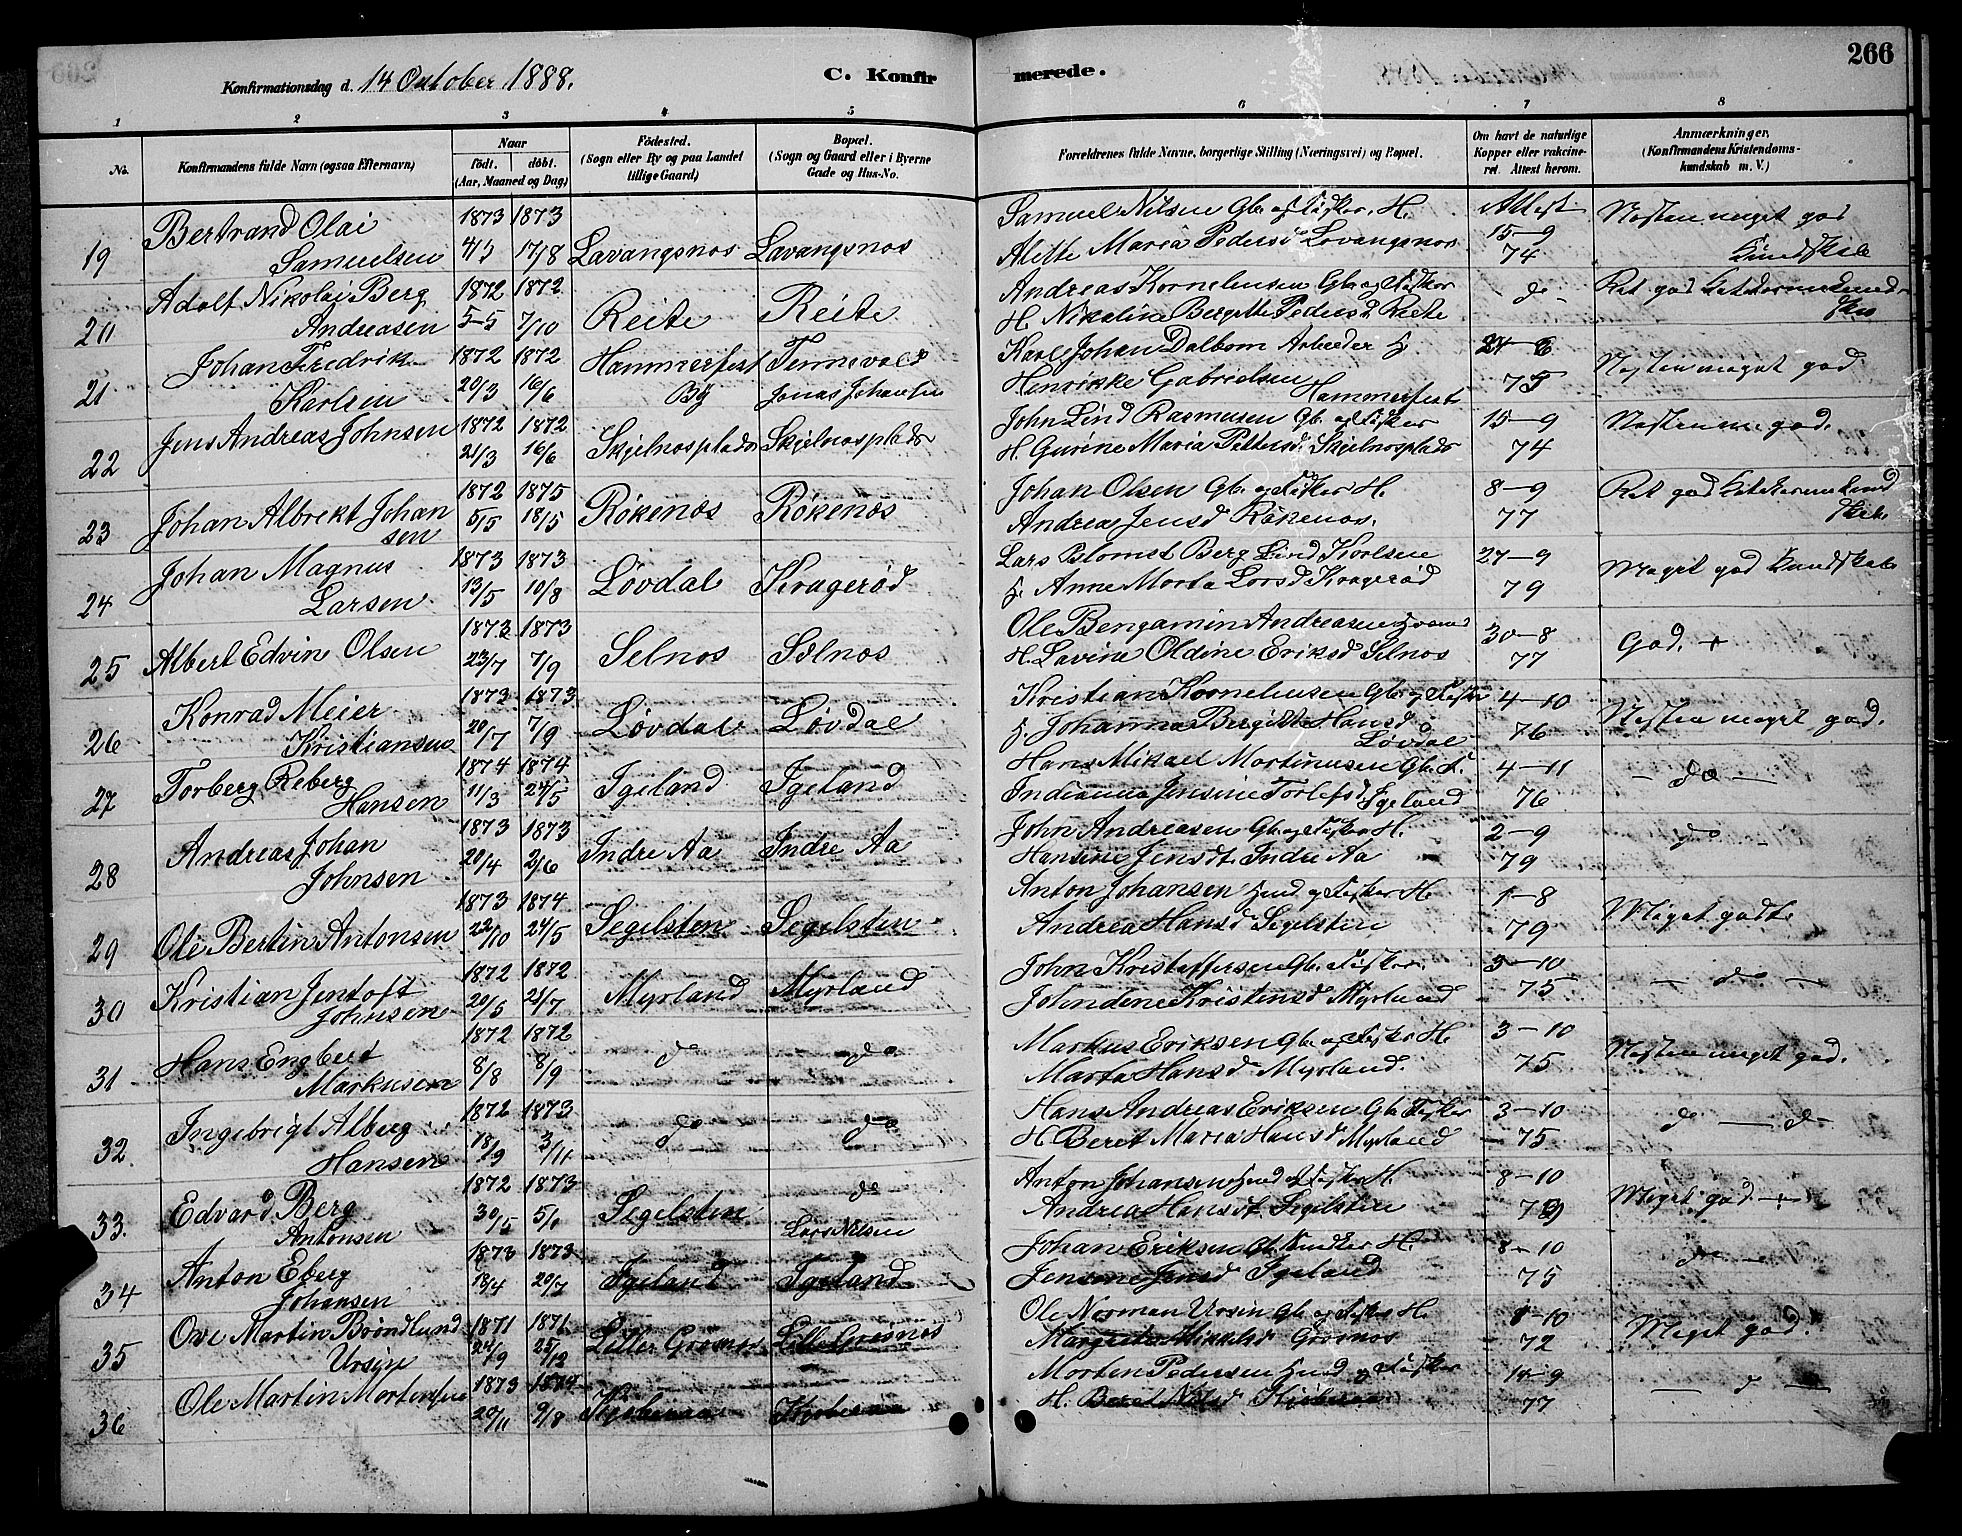 266
Konfirmationsdag d. 14 October 1888.
C. Konfirmerede.
1 2 3 4 5 6 7 8
No.
Konfirmandens fulde Navn (ogsaa Efternavn)
Naar
födt. döbt.
(Aar, Maaned og Dag)
Födested.
(Sogn eller By og paa Landet
tillige Gaard)
Bopæl.
(Sogn og Gaard eller i Byerne
Gade og Hus-No.
Forældrenes fulde Navne, borgerlige Stilling (Næringsvei) og Bopæl.
Om havt de naturlige
Kopper eller vakcine-
ret. Attest herom.
Anmærkninger,
(Konfirmandens Kristendoms-
kundskab m. V.)
Bertrand Olai 1873 1873 Samuel Nilsen Gb. og Fisker. H. Attest Næsten meget god
19 Samuelsen 17/8 Lavangsnos Lavangsnos Alette Maria Pedersd Lovangsnos 15-9 74 Kundskab
Adolf Nikolai Berg 1872 1872 Andreas Kornelinsen Gb. og Fisker
20 Andreasen 5-5 7/10 Reite Reite H. Nikoline Bergitte Pedersd Reite do
Johan Fredrik 1872 1872 Hammerfest Karl Johan Dalbom Arbeider
21 Karlsen 20/3 16/6 By Jonas Johansen Henrikke Gabrielsen Hammerfest 75 Næsten meget god
Jens Andreas Johnsen 1872 1872 John Lind Rasmusen Gb. og Fisker 15-9
22 21/3 16/6 Skjelnosplads Skjelnosplads H. Gurine Maria Pettersd. Skjelnosplads 74
Johan Albrekt Johan 1872 1875 Johan Olsen Gb. og Fisker H. 8-9
23 sen 5/5 18/5 Rökenos Rökenos Andrea Jensd Rökenos. 77
Johan Magnus 1873 1873 Lars Blomst Berg Lind Korlsen 27-9
24 Larsen 13/5 10/8 Løvdal Kragerød Anne Marta Lorsd Kragerød 79 Meget god Kundskab
1873 1873 Ole Bengamin Andreasen
25 Albert Edvin Olsen 23/7 7/9 Selnos Selnos H. Lavine Oldine Eriksd Selnos 30-8 77 God. +
Konrad Meier 1873 1873 Kristian Kornelinsen Gb. og Fisker 4-10
26 Kristiansen 20/7 7/9 Løvdal Løvdal Johanna Bergitta Hansd Løvdal 76 Næsten meget god.
Torberg Reberg 1874 1874 Hans Mikael Martinusen Gb. F. 4-11
27 Hansen 11/3 24/5 Igeland Igeland Indianna Jensine Torlefsd Igeland 76 do
Andreas Johan 1873 1873 John Andreasen Gb. og Fisker H. 2-9
28 Johnsen 20/4 2/6 Indre Aa Indre Aa Hansine Jensdt. Indre Aa 79 do
1873 1874 Anton Johansen og Fisker H. 1-8
29 Ole Bertin Antonsen 22/10 24/5 Segelsten Segelsten Andrea Hansd Segelsten 79 Meget godt
Kristian Jentoft 1872 1872 John Kristoffersen Gb. Fisker. 3-10
30 Johnsen 20/5 21/7 Myrland Myrland Johndine Kristensd Myrland 75 do
Hans Engbert 1872 1872 Markus Eriksen Gb. og Fisker H. 3-10
31 Markusen 8/8 8/9 do do Marta Hansd Myrland. 75 Næsten meget god.
Ingebrigt Alberg 1872 1873 Hans Andreas Eriksen Gb. Fisker 3-10
32. Hansen 18/9 3/11 do do H Beret Maria Hansd Myrland 75 do do
Edvard Berg 1872 1873 do Anton Johansen og Fisker H. 8-10
33. Antonsen 30/5 Segelsten Lars Nilsen Andrea Hansdt. Segelsten Meget god +
Anton Eberg 1873 1873 Johan Eriksen Gb. H. 8-10
34 Johansen 13/4 20/7 Igeland Igeland Jensine Jensd Igeland 75 do
Ove Martin Bröndlund 1871 1871 Ole Norman Ursin Gb. og Fisker H.
35 Ursin 24/9 Grösnos 72 Meget god.
Ole Martin Mortensen 1873 1874 Morten Pedersen og Fisker
36 20/11 9/8 H. Beret Nilsd 77 do